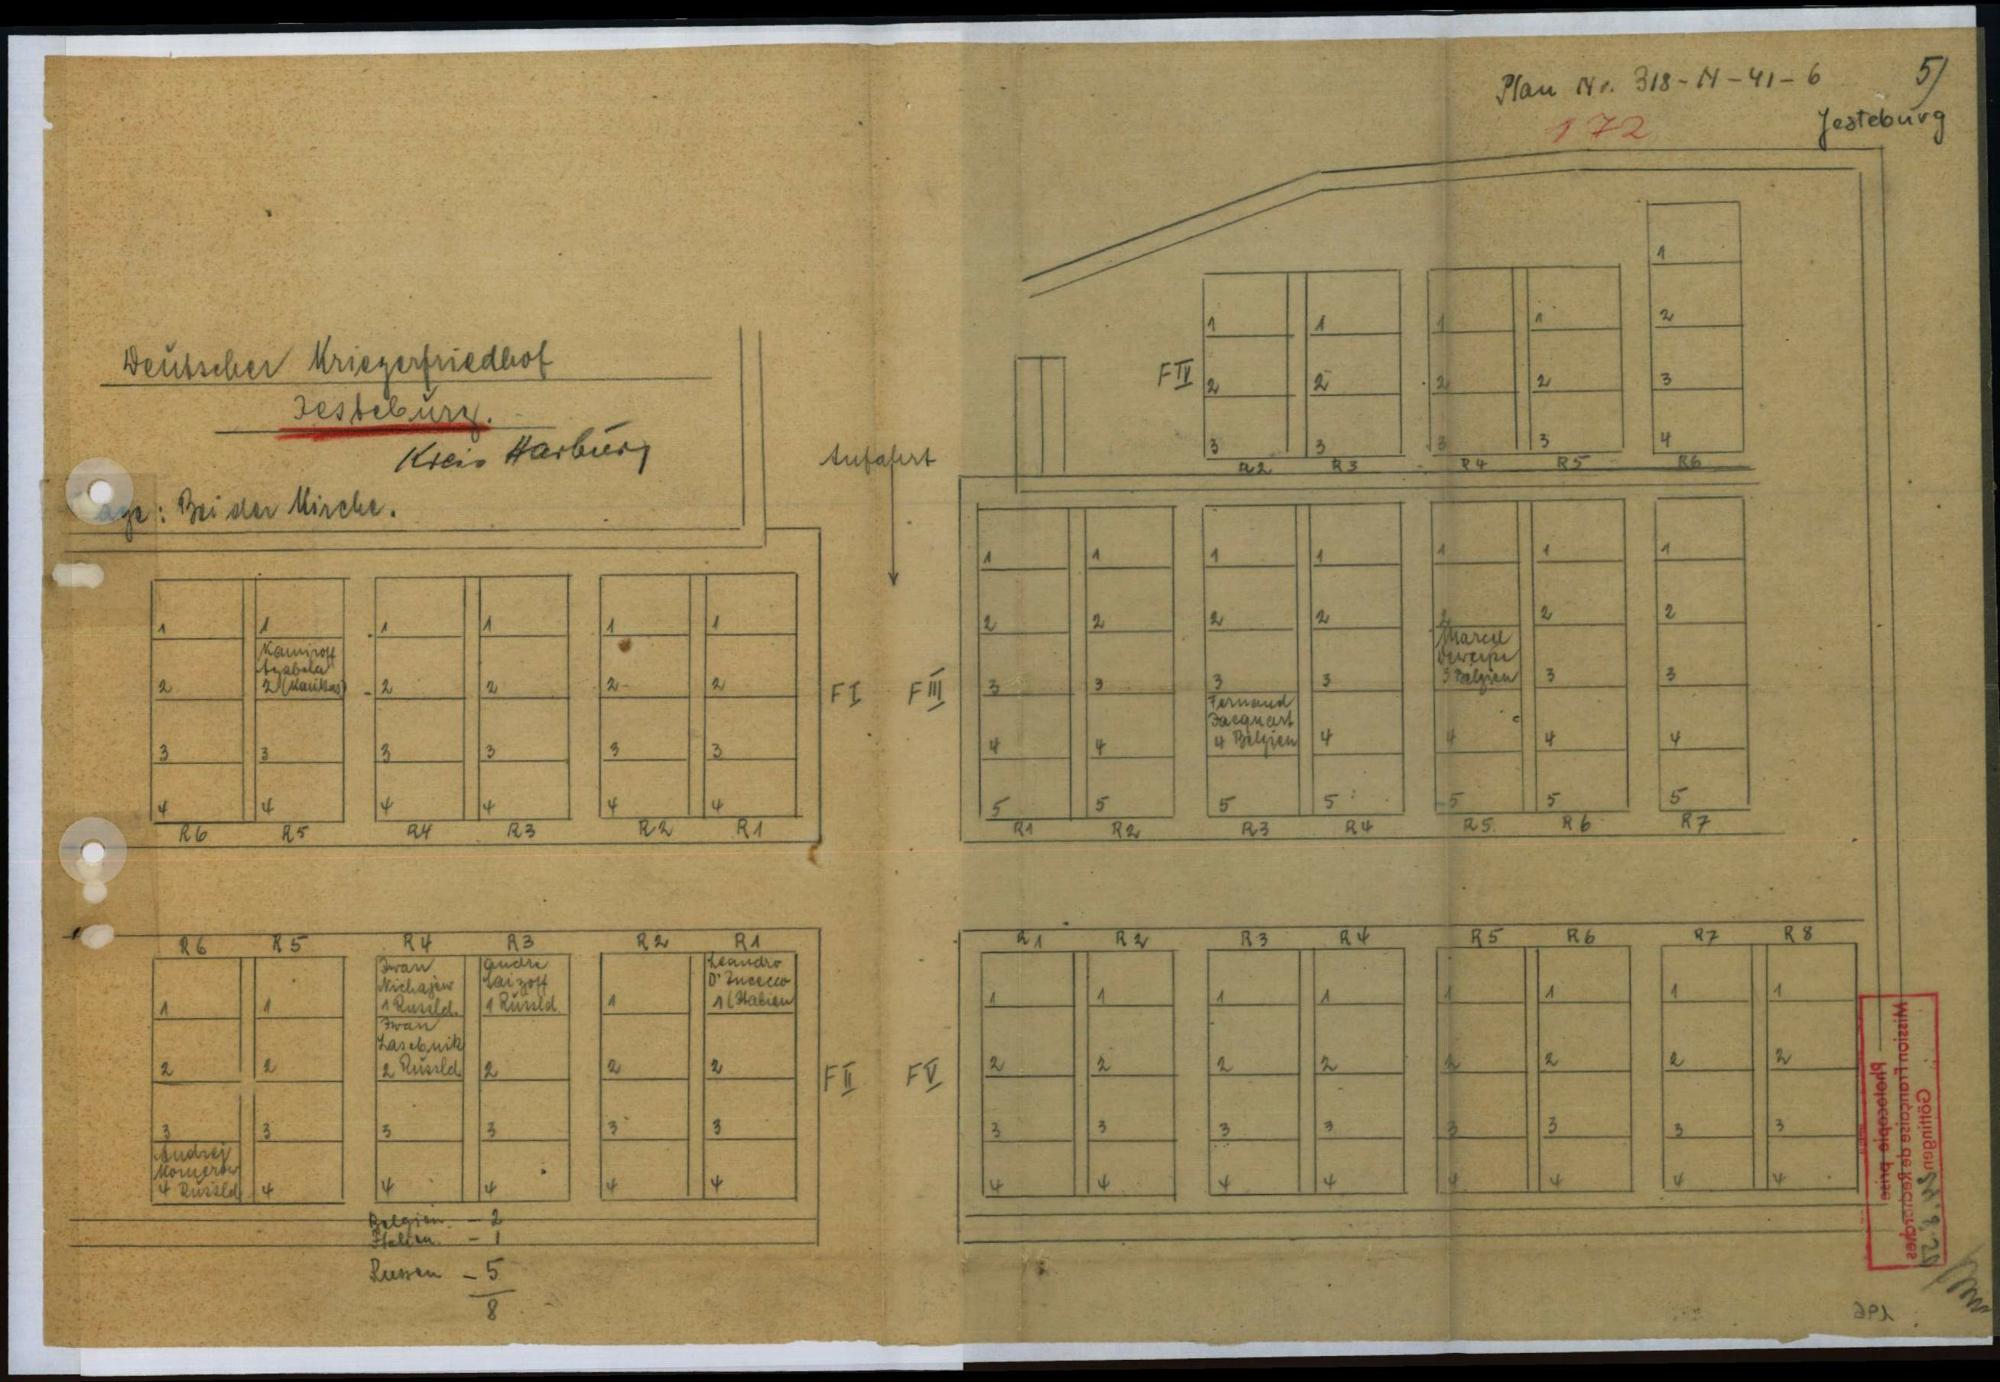 Plan Nr. 318-N-41-6
5)
172
Jesteburg
Deutscher Kriegerfriedhof
Jesteburg.
Kreis Harburg
Lage: Bei der Kirche.
Anfahrt
F IV
1 1 1 1 1
2 2 2 2 2
3 3 3 3 3
4
R2 R3 R4 R5 R6
F I
1 1 1 1 1 1
Azabela
2 2 (Kaukas) 2 2 2 2
3 3 3 3 3 3
4 4 4 4 4 4
R6 R5 R4 R3 R2 R1
F III
1 1 1 1 1 1 1
2 2 2 2 2 2 2
Marcel
3 3 3 3 3 Belgien 3 3
Fernand
Jacquart
4 4 4 Belgien 4 4 4 4
5 5 5 5 5 5 5
R1 R2 R3 R4 R5 R6 R7
F II
R6 R5 R4 R3 R2 R1
Iwan Andre Leandro
Nichajew Laizoff D'Incecco
1 1 1 Russld. 1 Russld 1 1 (Italien
Iwan
Lasebnik
2 2 2 Russld 2 2 2
3 3 3 3 3 3
Andrej
4 Russld 4 4 4 4 4
F V
R1 R2 R3 R4 R5 R6 R7 R8
1 1 1 1 1 1 1 1
2 2 2 2 2 2 2 2
3 3 3 3 3 3 3 3
4 4 4 4 4 4 4 4
Belgien - 2
Italien - 1
Russen - 5
8
Göttingen
Mission Française de Recherches
photocopie prise